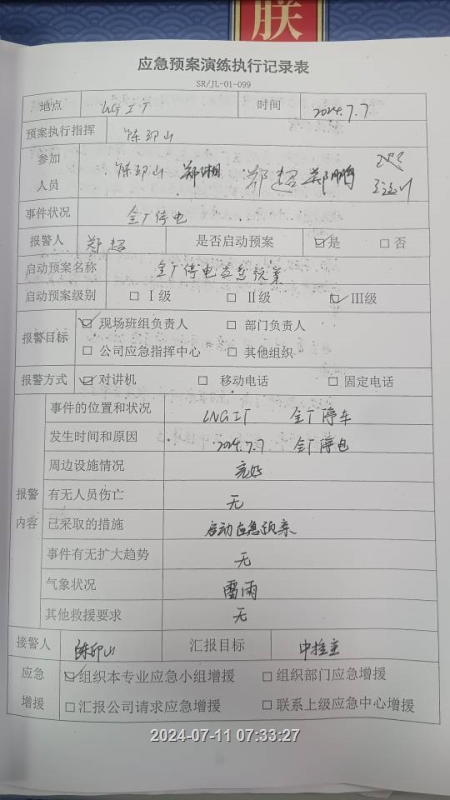 朕
应急预案演练执行记录表
SR/JL-01-099
地点 LNG工厂 时间 2024.7.7
预案执行指挥 陈卯山
参加人员 陈卯山 郑湘 郑超 郑鹏
事件状况 全厂停电
报警人 郑超 是否启动预案 ☑是 □否
启动预案名称 全厂停电应急预案
启动预案级别 □Ⅰ级 □Ⅱ级 ☑Ⅲ级
报警目标 ☑现场班组负责人 □部门负责人
□公司应急指挥中心 □其他组织
报警方式 ☑对讲机 □移动电话 □固定电话
报警内容
事件的位置和状况 LNG工厂 全厂停车
发生时间和原因 2024.7.7 全厂停电
周边设施情况 完好
有无人员伤亡 无
已采取的措施 启动应急预案
事件有无扩大趋势 无
气象状况 雷雨
其他救援要求 无
接警人 陈卯山 汇报目标 中控室
应急增援 ☑组织本专业应急小组增援 □组织部门应急增援
□汇报公司请求应急增援 □联系上级应急中心增援
2024-07-11 07:33:27